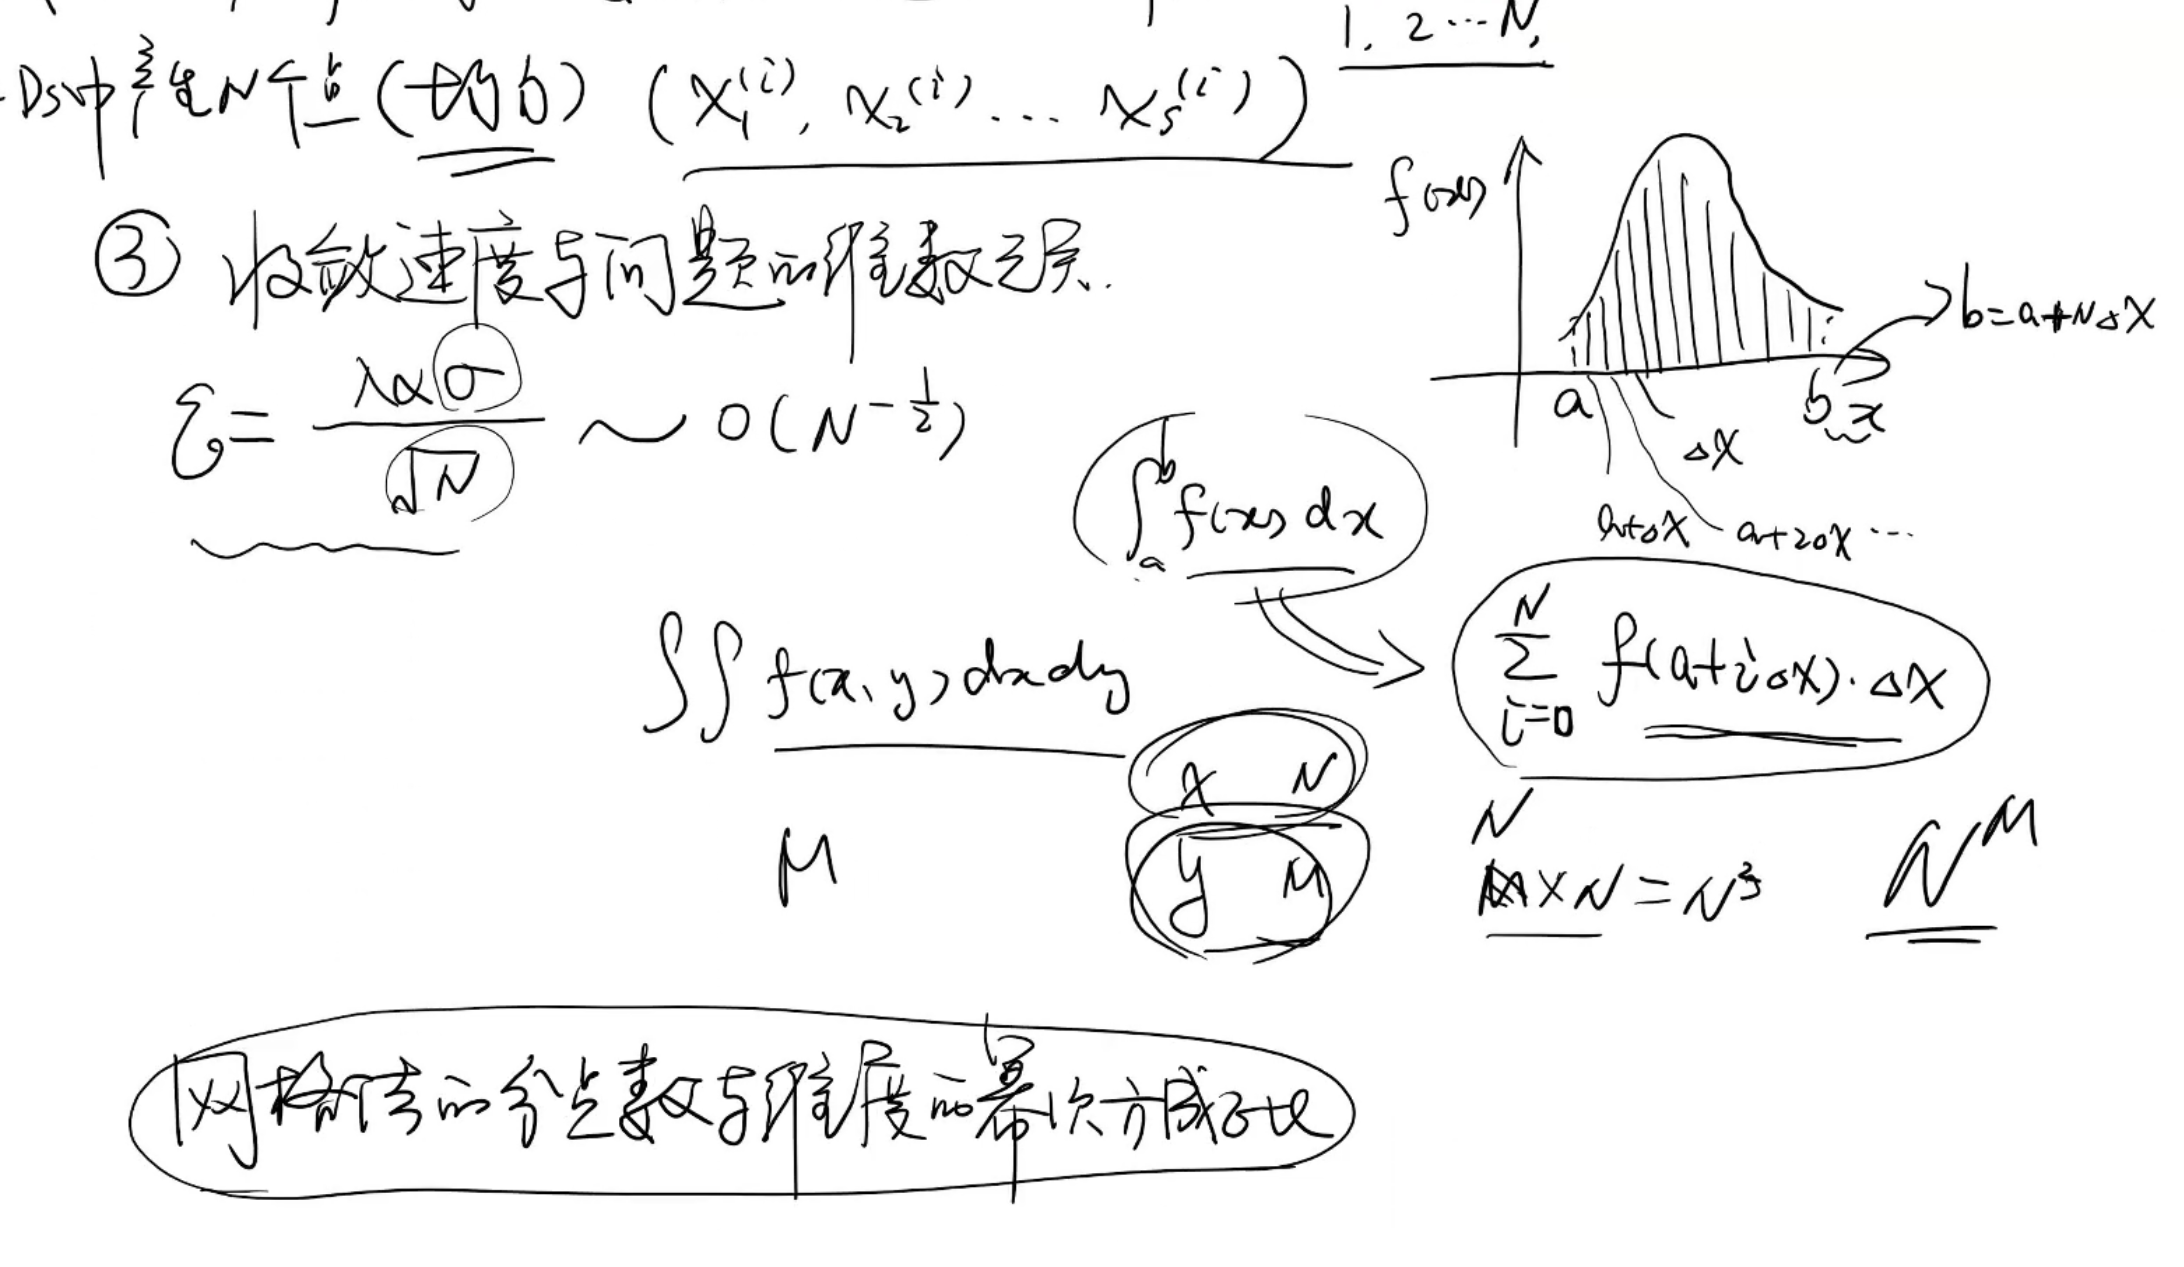 1, 2 ··· N,
Ds中产生N个点(均匀) (x₁⁽ⁱ⁾, x₂⁽ⁱ⁾ ··· xₛ⁽ⁱ⁾)
③ 收敛速度与问题的维数无关.
ε = λασ/√N ~ O(N^{-1/2})
f(x)
a
b
x
b=a+NΔX
ΔX
a+ΔX
a+2ΔX ···
∫ₐᵇ f(x) dx
∫∫ f(x, y) dxdy
∑_{i=0}^{N} f(a+iΔX)·ΔX
x N
y M
M
N
×N = N
N^M
网格法的分点数与维度的幂次方成正比